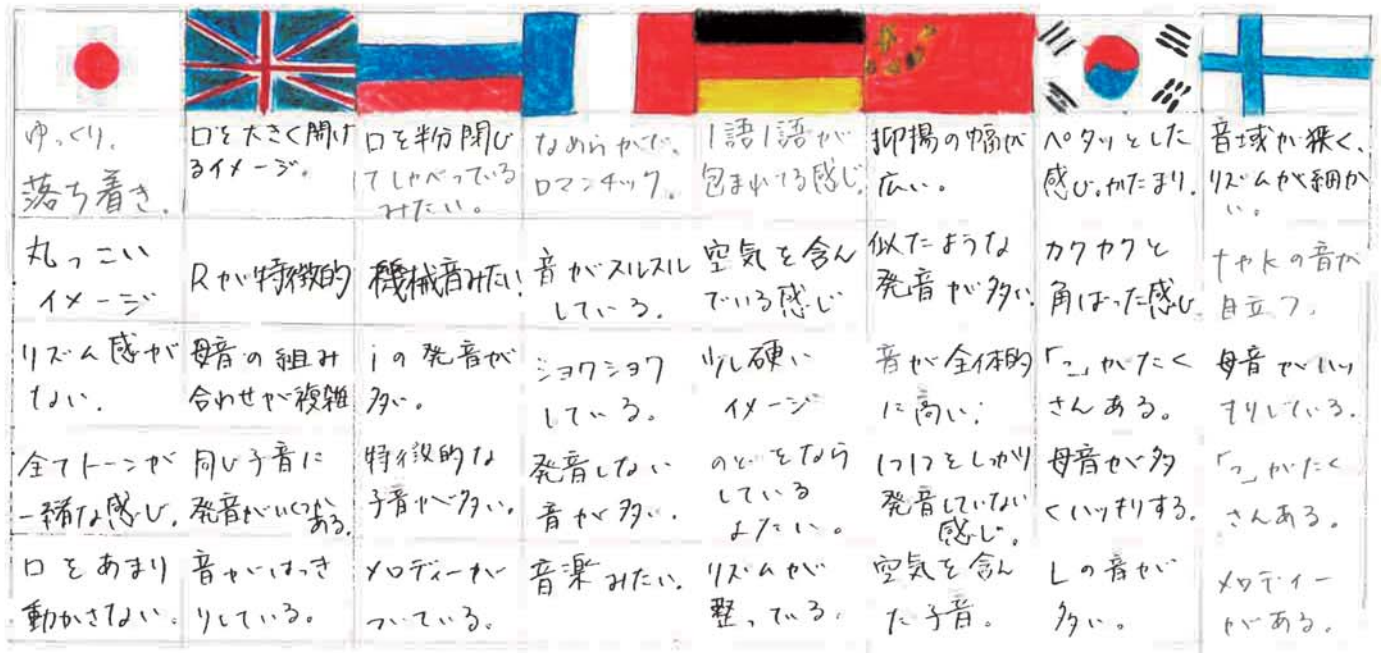 ゆっくり。
落ち着き。
口を大きく開け
るイメージ。
口を半分閉じ
てしゃべっている
みたい。
なめらかだ、
ロマンチック。
1語1語が
包まれてる感じ。
抑揚の幅が
広い。
ペタッとした
感じ。かたまり。
音域が狭く、
リズムが細か
い。
丸っこい
イメージ
Rが特徴的
機械音みたい!
音がスルスル
している。
空気を含ん
でいる感じ
似たような
発音が多い。
カクカクと
角ばった感じ
tやkの音が
目立つ。
リズム感が
ない。
母音の組み
合わせが複雑
iの発音が
多い。
ショワショワ
している。
少し硬い
イメージ
音が全体的
に高い。
「っ」がたく
さんある。
母音がハッ
キリしている。
全てトーンが
一緒な感じ。
同じ子音に
発音がいくつか
ある。
特徴的な
子音が多い。
発音しない
音が多い。
のどをなら
している
みたい。
1つ1つをしっかり
発音していない
感じ。
母音が多
くハッキリする。
「っ」がたく
さんある。
口をあまり
動かさない。
音がはっき
りしている。
メロディーが
ついている。
音楽みたい。
リズムが
整っている。
空気を含ん
だ子音。
Lの音が
多い。
メロディー
がある。